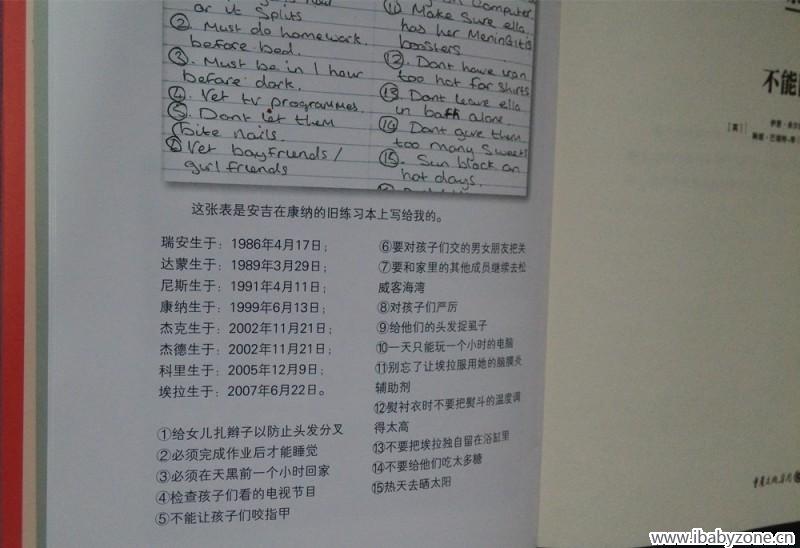 or it splits
② Must do homework
before bed.
③. Must be in 1 hour
before dark.
④. Vet tv programmes.
⑤. Dont let them
bite nails.
⑥ Vet boyfriends /
girlfriends
⑪ Make sure ella
has her Meningitis
boosters
⑫. Dont have iron
too hot for shirts
⑬ Dont leave ella
in bath alone.
⑭ Dont give them
too many sweets
⑮. Sun block on
hot days.
这张表是安吉在康纳的旧练习本上写给我的。
瑞安生于：1986年4月17日；
达蒙生于：1989年3月29日；
尼斯生于：1991年4月11日；
康纳生于：1999年6月13日；
杰克生于：2002年11月21日；
杰德生于：2002年11月21日；
科里生于：2005年12月9日；
埃拉生于：2007年6月22日。
①给女儿扎辫子以防止头发分叉
②必须完成作业后才能睡觉
③必须在天黑前一个小时回家
④检查孩子们看的电视节目
⑤不能让孩子们咬指甲
⑥要对孩子们交的男女朋友把关
⑦要和家里的其他成员继续去松
威客海湾
⑧对孩子们严厉
⑨给他们的头发捉虱子
⑩一天只能玩一个小时的电脑
⑪别忘了让埃拉服用她的脑膜炎
辅助剂
⑫熨衬衣时不要把熨斗的温度调
得太高
⑬不要把埃拉独自留在浴缸里
⑭不要给他们吃太多糖
⑮热天去晒太阳
不能
[英]
www.ibabyzone.cn